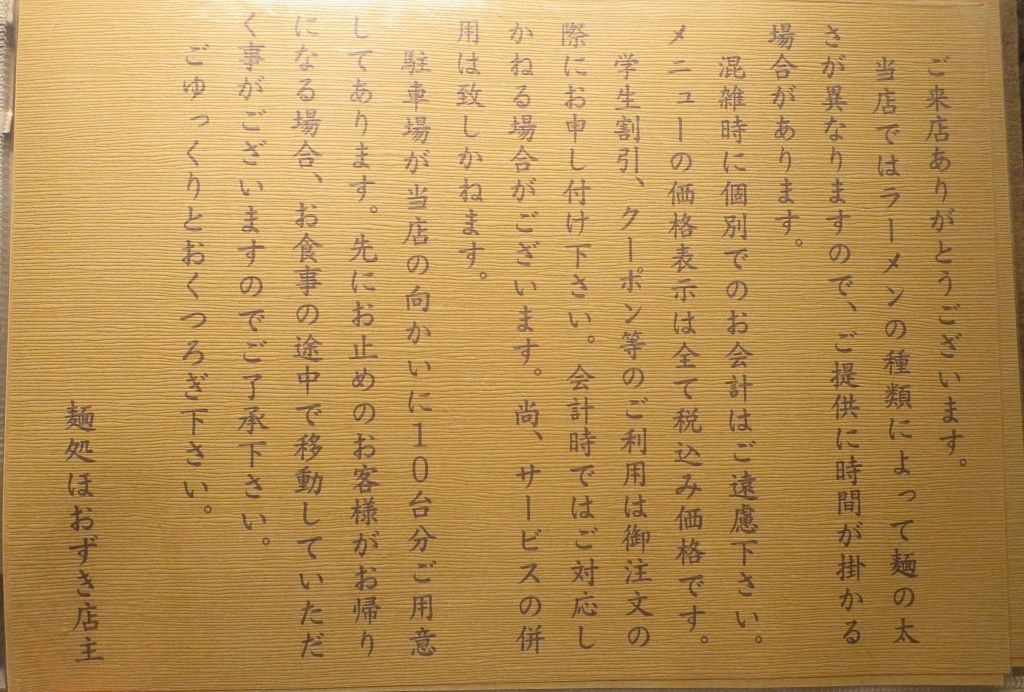 ご来店ありがとうございます。
当店ではラーメンの種類によって麺の太
さが異なりますので、ご提供に時間が掛かる
場合があります。
混雑時に個別でのお会計はご遠慮下さい。
メニューの価格表示は全て税込み価格です。
学生割引、クーポン等のご利用は御注文の
際にお申し付け下さい。会計時ではご対応し
かねる場合がございます。尚、サービスの併
用は致しかねます。
駐車場が当店の向かいに10台分ご用意
してあります。先にお止めのお客様がお帰り
になる場合、お食事の途中で移動していただ
く事がございますのでご了承下さい。
ごゆっくりとおくつろぎ下さい。
麺処ほおずき店主